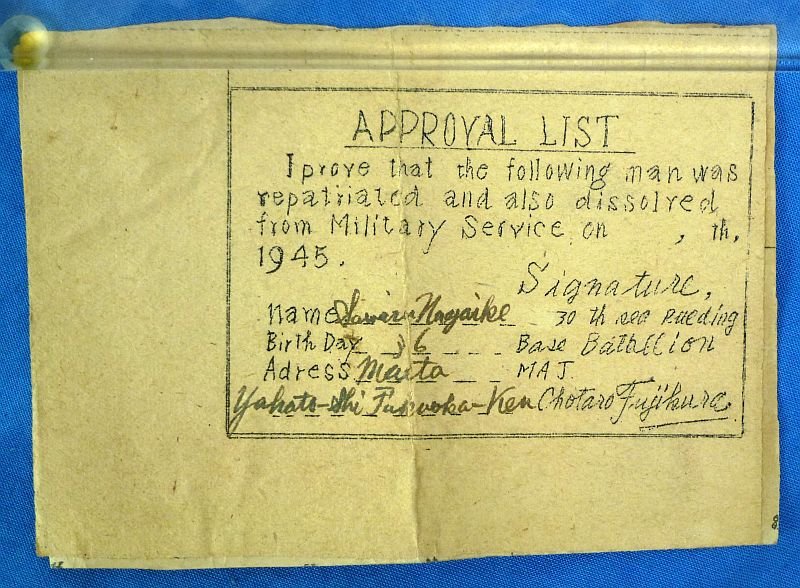 APPROVAL LIST
I prove that the following man was
repatriated and also dissolved
from Military Service on , th.
1945.
Signature,
Name Nagaike 30 th sea
Birth Day 6 Base Batallion
Adress Maita MAJ.
Yahata-Shi Fukuoka-Ken Chotaro Fujikura